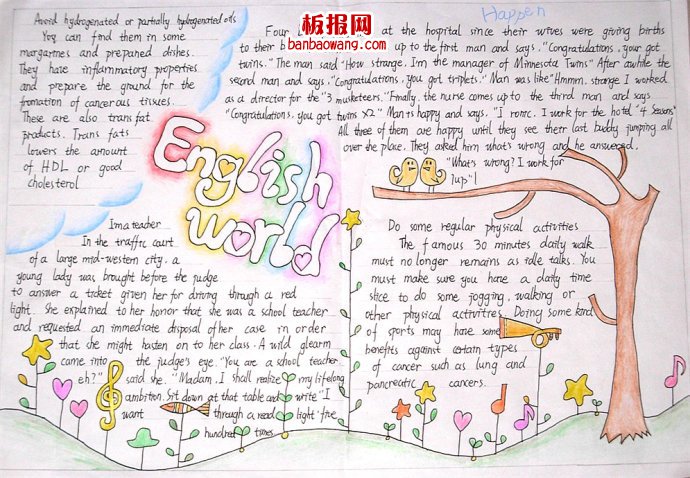 板报网
banbaowang.com
Avoid hydrogenated or partially hydrogenated oils
You can find them in some
margartnes and prepaned dishes.
They have inflammatory properties
and prepare the ground for the
fromation of cancerous tissues.
These are also trans fat
products. Trans fats
lowers the amount
of HDL or good
cholesterol
English
world
Happen
Four at the hospital since their wives were giving births
to their b up to the first man and says. "Congratulations, your got
twins." The man said "How strange. I'm the manager of Minnesota Twins" After awhile the
second man and says. "Congratulations, you got triplets." Man was like "Hmmm. strange I worked
as a director for the "3 musketeers." Finally, the nurse comes up to the third man and says
"Congratulations. you got twins x2" Man is happy and says. "I ronic. I work for the hotel "4 Seasons"
All three of them are happy until they see therr last buddy jumping all
over the place. They asked him what's wrong and he answered.
"What's wrong? I work for
7up"!
Im a teacher
In the traffic court
of a large mid-western city. a
young lady was brought before the judge
to answer a ticket given her for driving through a red
light. She explained to her honor that she was a school teacher
and requested an immediate disposal of her case in order
that she might hasten on to her class. A wild glearm
came into the judge's eye. "You are a school teacher.
eh?" said she. "Madam, I shall realize my lifelong
ambition. Sit down at that table and write "I
want through a read light five
hundred times.
Do some regular physical activities
The famous 30 minutes daily walk
must no longer remains as idle talks. You
must make sure you have a daily time
slice to do some jogging, walking or
other physical activitres. Doing some kind
of sports may have some
benefits against certain types
of cancer such as lung and
pancreatic cancers.